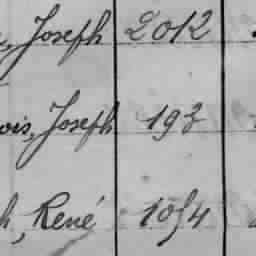 , Joseph 2012
ois, Joseph 193
h, René 1054